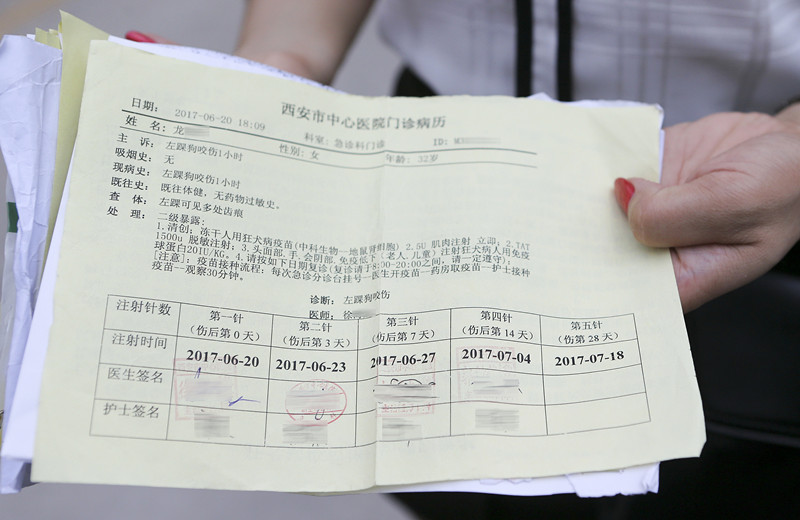 西安市中心医院门诊病历
日期: 2017-06-20 18:09 科室: 急诊科门诊 ID:
姓 名: 龙 性别: 女 年龄: 32岁
主 诉: 左踝狗咬伤1小时
吸烟史: 无
现病史: 左踝狗咬伤1小时
既往史: 既往体健, 无药物过敏史。
查 体: 左踝可见多处齿痕
处 理: 二级暴露:
1.清创; 冻干人用狂犬病疫苗(中科生物—地鼠肾细胞) 2.5U 肌肉注射 立即; 2.TAT
1500u 脱敏注射; 3.头面部,手,会阴部,免疫低下〔老人,儿童〕注射狂犬病人用免疫
球蛋白20IU/KG。4.请按如下日期复诊(复诊请于8:00-20:00之间, 请一定遵守);
[注意]: 疫苗接种流程: 每次急诊分诊台挂号—医生开疫苗—药房取疫苗—护士接种
疫苗—观察30分钟。
诊断: 左踝狗咬伤
医师: 徐
注射针数 第一针 第二针 第三针 第四针 第五针
(伤后第 0 天) (伤后第 3 天) (伤后第 7 天) (伤后第 14 天) (伤后第 28 天)
注射时间 2017-06-20 2017-06-23 2017-06-27 2017-07-04 2017-07-18
医生签名
护士签名